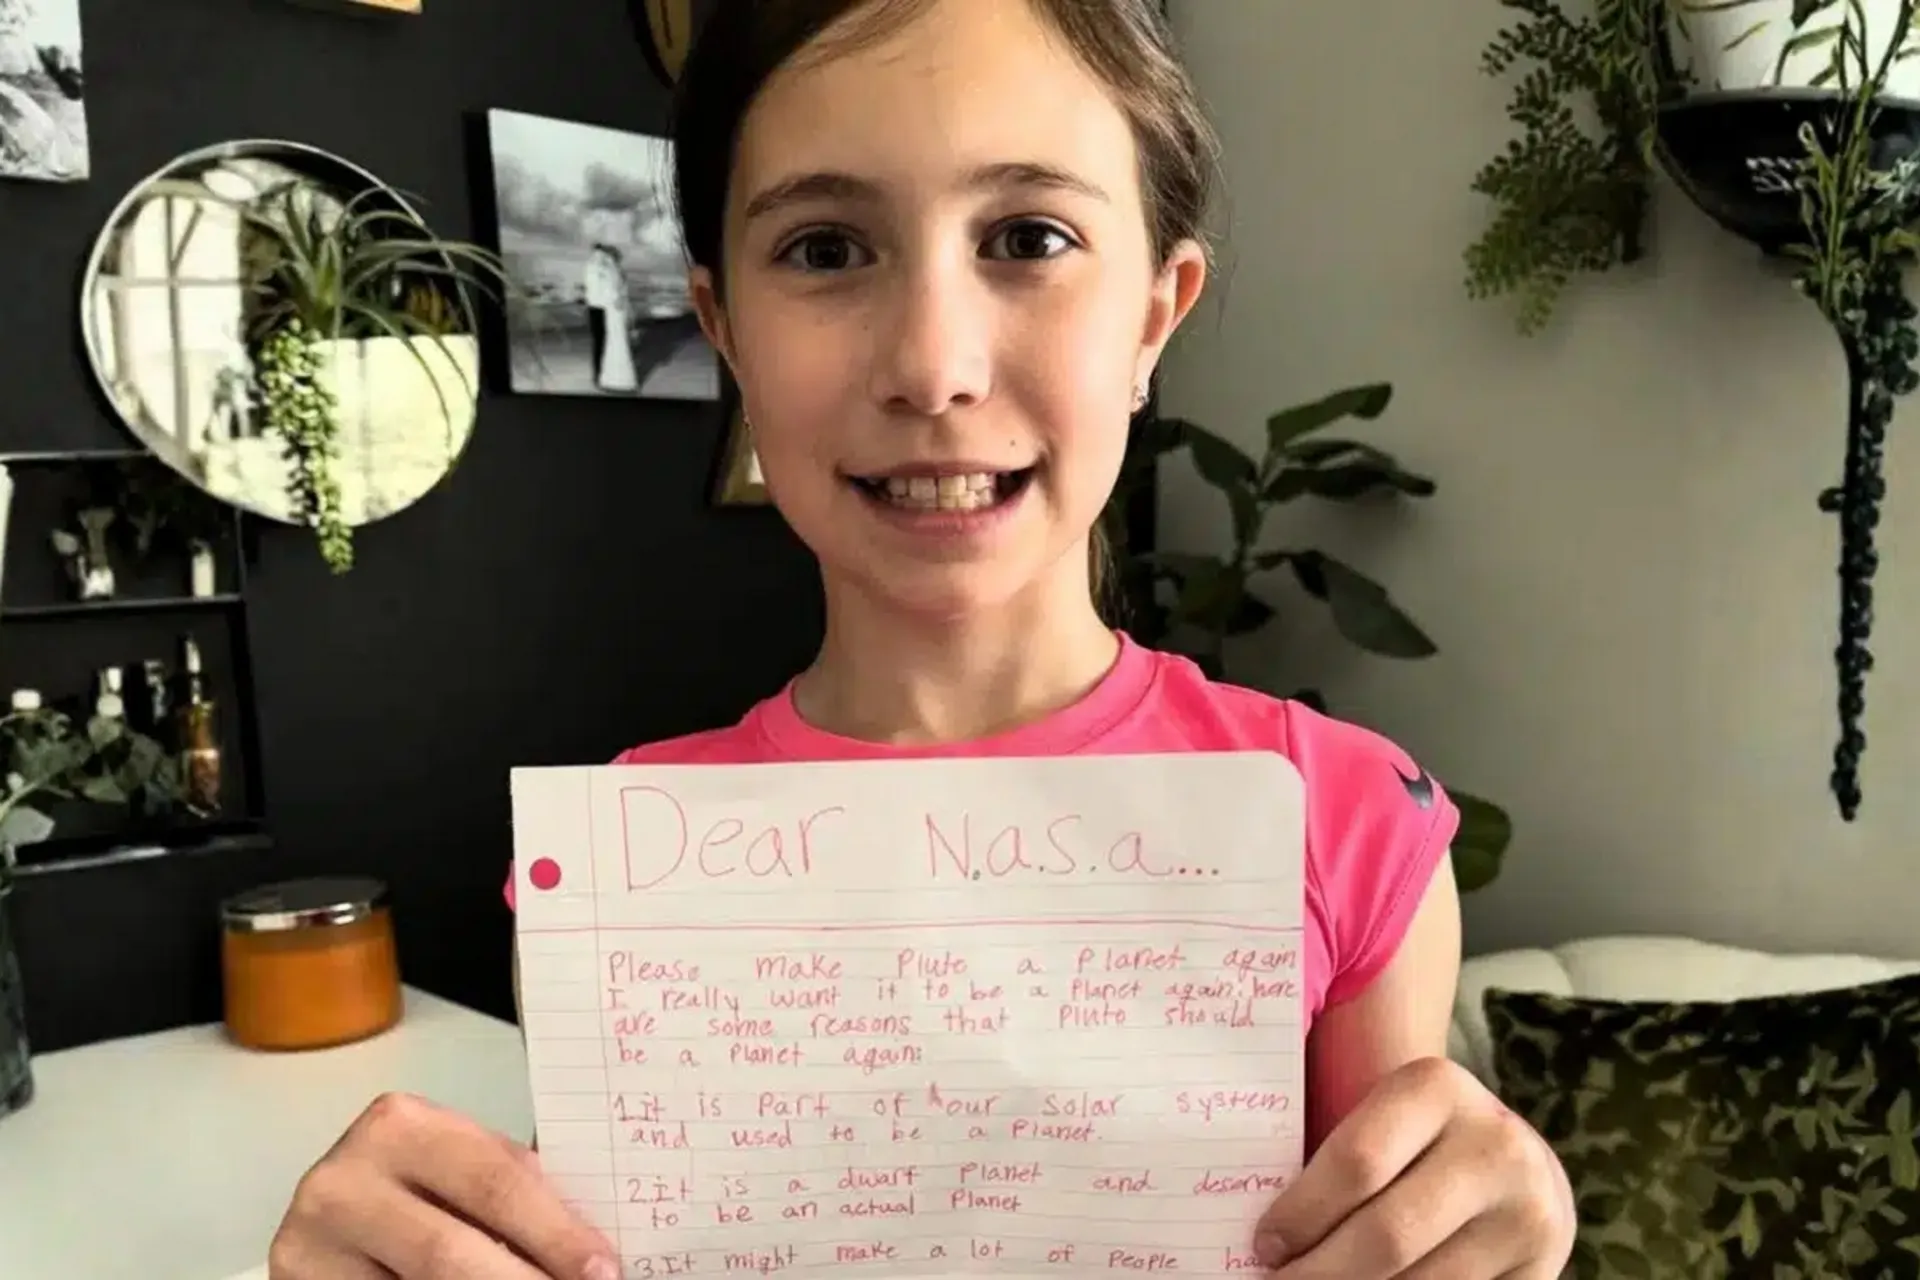 Dear N.a.S.a...
Please make Pluto a Planet again
I really want it to be a Planet again. here
are some reasons that Pluto should
be a Planet again:
1.it is Part of our solar system
and used to be a Planet.
2.it is a dwarf Planet and deserve
to be an actual Planet
3.It might make a lot of People